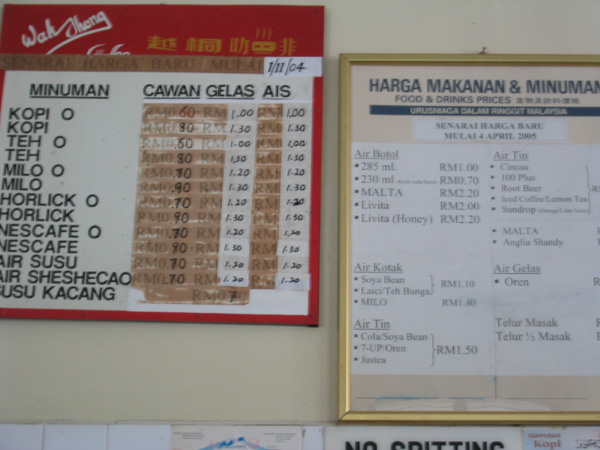 Wah Jhong
越桐叻啡
SENARAI HARGA BARU MULAI 1/11/04
MINUMAN CAWAN GELAS AIS
KOPI O RM0.60 RM 1.00 RM 1.00
KOPI 80 RM 1.30 RM 1.30
TEH O RM0.60 RM 1.00 RM 1.00
TEH RM0.80 RM 1.30 RM 1.50
MILO O RM0.70 RM 1.20 RM 1.20
MILO RM0.90 RM 1.30 RM 1.30
HORLICK O RM0.70 RM 1.20 RM 1.20
HORLICK RM0.90 RM 1.30 RM 1.30
NESCAFE O RM0.70 RM 1.20 RM 1.20
NESCAFE RM0.90 RM 1.30 RM 1.30
AIR SUSU RM0.70 RM 1.20 RM 1.20
AIR SHESHECAO RM0.70 RM 1.20 RM 1.20
SUSU KACANG 7
HARGA MAKANAN & MINUMAN
FOOD & DRINKS PRICES 食物及飲料價格
URUSNIAGA DALAM RINGGIT MALAYSIA
SENARAI HARGA BARU
MULAI 4 APRIL 2005
Air Botol
285 ml. RM1.00
230 ml RM0.70
MALTA RM2.20
Livita RM2.00
Livita (Honey) RM2.20
Air Tin
Cincau
100 Plus
Root Beer
Iced Coffee/Lemon Tea
Sundrop
MALTA
Anglia Shandy
Air Kotak
Soya Bean
Laici/Teh Bunga RM1.10
MILO RM1.40
Air Gelas
Oren
Air Tin
Cola/Soya Bean
7-UP/Oren RM1.50
Justea
Telur Masak
Telur ½ Masak
NO SPITTING
Kopi